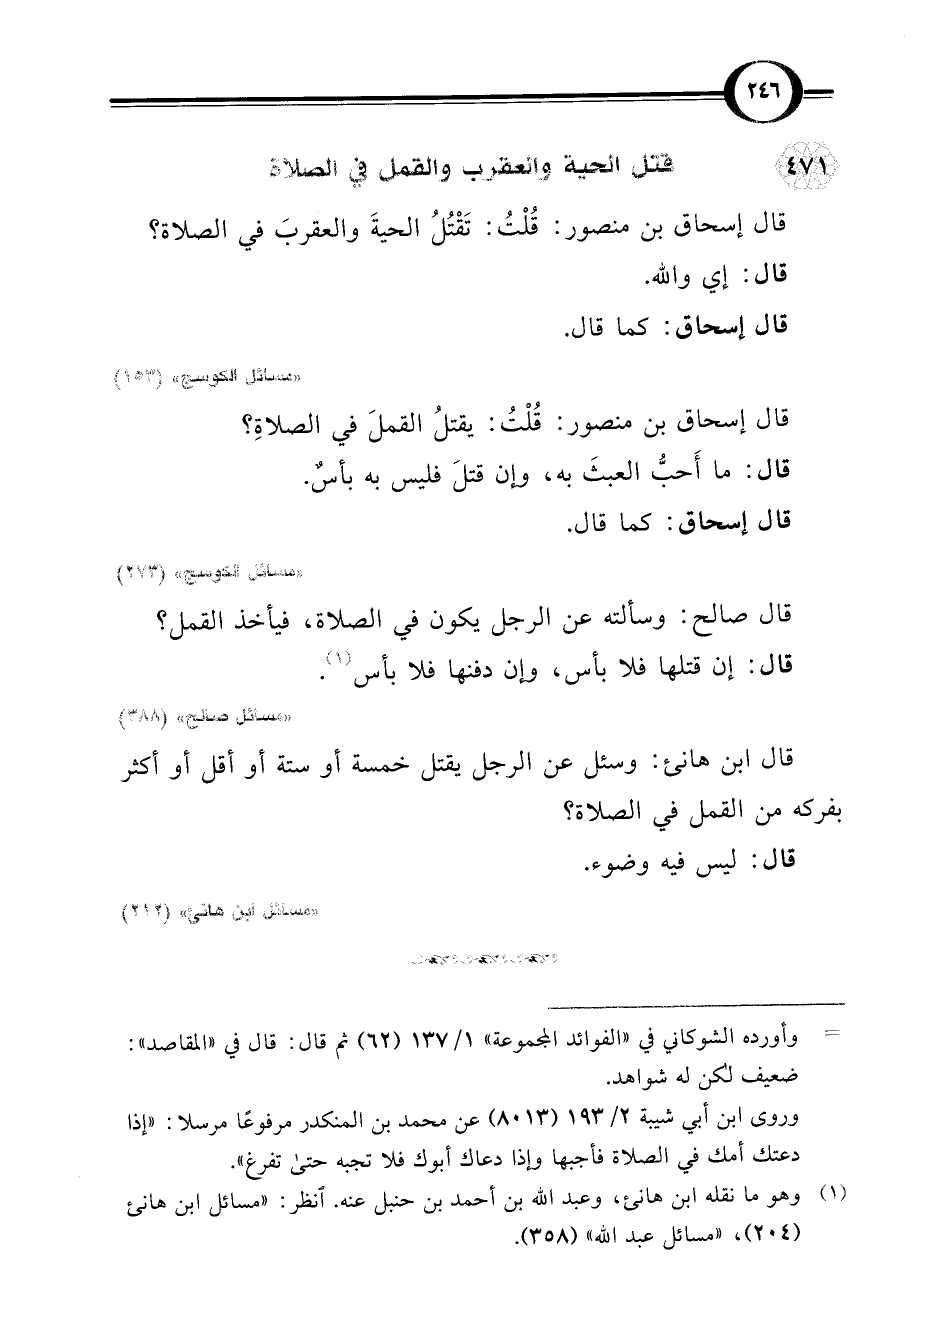 ٢٤٦
٤٧١ قتل الحية والعقرب والقمل في الصلاة
قال إسحاق بن منصور: قُلْتُ: تَقْتُلُ الحيةَ والعقربَ في الصلاة؟
قال: إي والله.
قال إسحاق: كما قال.
«مسائل الكوسج» (١٥٣)
قال إسحاق بن منصور: قُلْتُ: يقتلُ القملَ في الصلاةِ؟
قال: ما أَحبُّ العبثَ به، وإن قتلَ فليس به بأسٌ.
قال إسحاق: كما قال.
«مسائل الكوسج» (٢٧٣)
قال صالح: وسألته عن الرجل يكون في الصلاة، فيأخذ القمل؟
قال: إن قتلها فلا بأس، وإن دفنها فلا بأس(١).
«مسائل صالح» (٣٨٨)
قال ابن هانئ: وسئل عن الرجل يقتل خمسة أو ستة أو أقل أو أكثر
بفركه من القمل في الصلاة؟
قال: ليس فيه وضوء.
«مسائل ابن هانئ» (٢١٢)
= وأورده الشوكاني في «الفوائد المجموعة» ١/ ١٣٧ (٦٢) ثم قال: قال في «المقاصد»:
ضعيف لكن له شواهد.
وروى ابن أبي شيبة ٢/ ١٩٣ (٨٠١٣) عن محمد بن المنكدر مرفوعًا مرسلا: «إذا
دعتك أمك في الصلاة فأجبها وإذا دعاك أبوك فلا تجبه حتىٰ تفرغ».
(١) وهو ما نقله ابن هانئ، وعبد الله بن أحمد بن حنبل عنه. ٱنظر: «مسائل ابن هانئ
(٢٠٤)، «مسائل عبد الله» (٣٥٨).